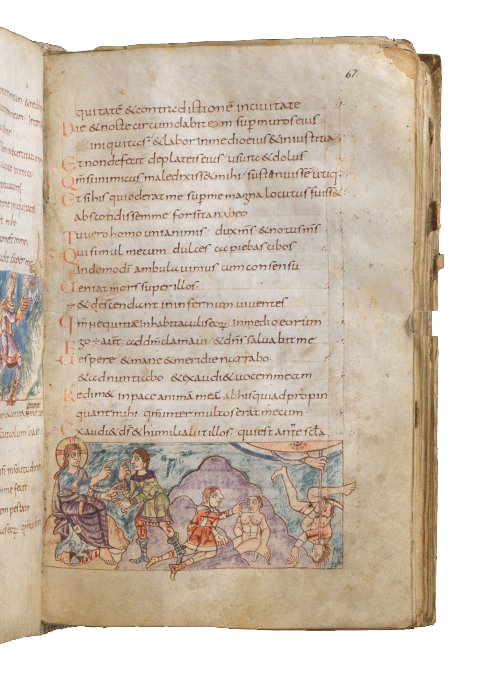 67.
quitatē & contradictionē inciuitate
Die & nocte circumdabit eam sup muros eius
iniquitas & labor inmedio eius & iniustitia
Et non defecit deplateis eius usura & dolus
Qm̄ si inimicus maledixiss& mihi sustinuissem utiq
Et si his qui oderat me super me magna locutus fuiss&
abscondissem me forsitan abeo
Tu uero homo unianimis dux m̄s & notus m̄s
Qui simul mecum dulces capiebas cibos
In domo dī ambulauimus cum consensu
Ueniat mors super illos
& descendant in infernum uiuentes
qm̄ nequitia in habitaculis eorum inmedio eorum
Ego ÷ aut̄ ad dm̄ clamaui & dn̄s saluabit me
Uespere & mane & meridie narrabo
& adnuntiabo & exaudi& uocem meam
Redim& in pace animā meā abhis qui adpropin
quant mihi qm̄ inter multos erat mecum
Exaudi& ds̄ & humiliabit illos qui est ante sc̄la